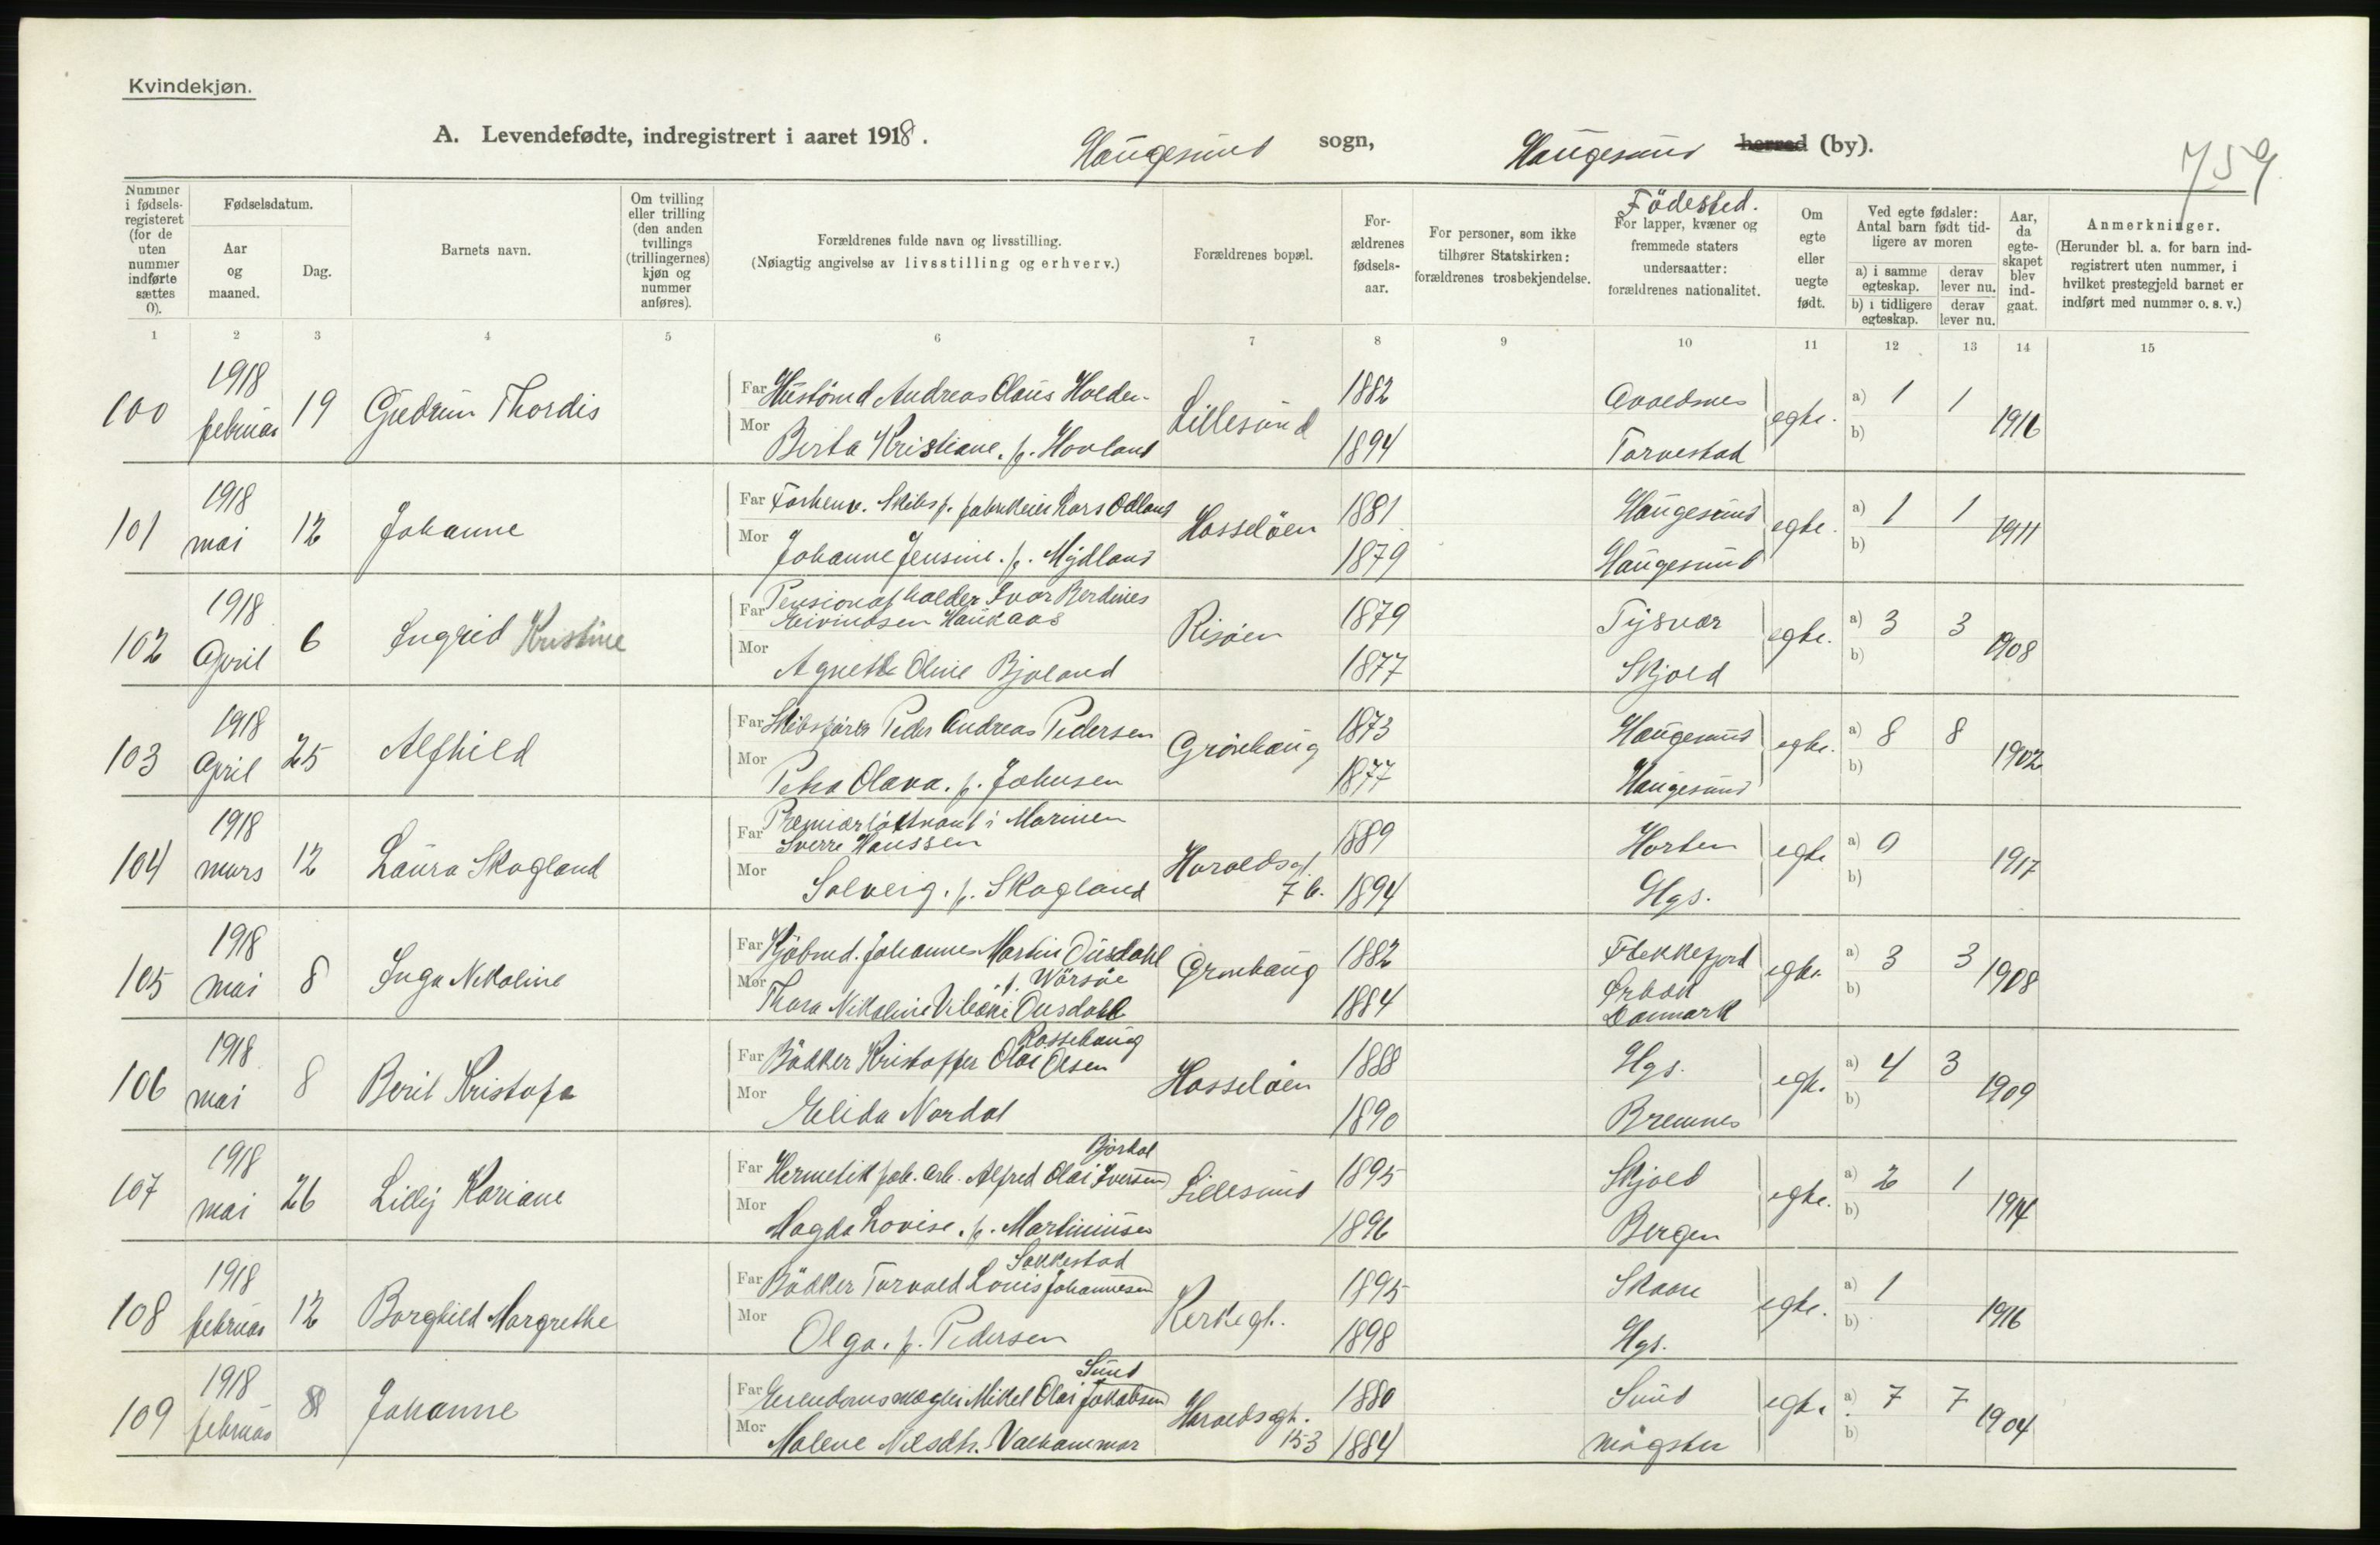 Kvindekjøn.
A. Levendefødte, indregistrert i aaret 1918. Haugesund sogn, Haugesund herred (by).
759
Nummer i fødselsregisteret (for de uten nummer indførte sættes 0).
Fødselsdatum.
Aar og maaned.
Dag.
Barnets navn.
Om tvilling eller trilling (den anden tvillings (trillingernes) kjøn og nummer anføres).
Forældrenes fulde navn og livsstilling.
(Nøiagtig angivelse av livsstilling og erhverv.)
Forældrenes bopæl.
Forældrenes fødselsaar.
For personer, som ikke tilhører Statskirken: forældrenes trosbekjendelse.
Födested.
For lapper, kvæner og fremmede staters undersaatter: forældrenes nationalitet.
Om egte eller uegte født.
Ved egte fødsler: Antal barn født tidligere av moren
a) i samme egteskap. derav lever nu.
b) i tidligere egteskap. derav lever nu.
Aar, da egteskapet blev indgaat.
Anmerkninger.
(Herunder bl. a. for barn indregistrert uten nummer, i hvilket prestegjeld barnet er indført med nummer o. s. v.)
1 2 3 4 5 6 7 8 9 10 11 12 13 14 15
100 1918 februar 19 Gudrun Thordis
Far Andreas Olaus Lillesund 1882 Avaldsnes egte. a) 1 1 1916
Mor Berta Kristiane. f. Hovland 1894 Torvestad b)
101 1918 mai 12 Johanne
Far Forhenv. Skibsf. Lars Odland Hasselöen 1881 Haugesund egte. a) 1 1 1911
Mor Johanne Jensine. f. Mydland 1879 Haugesund b)
102 1918 April 6 Ingrid Kristine
Far Pensionatholder Ivar Berdines
Eivindsen Haukaas Risöen 1879 Tysvær egte. a) 3 3 1908
Mor Agnethe Oline Bjoland 1877 Skjold b)
103 1918 April 25 Alfhild
Far Skibsförer Peder Andreas Pedersen Grönhaug 1873 Haugesund egte. a) 8 8 1902
Mor Petra Olava. f. Johnsen 1877 Haugesund b)
104 1918 mars 12 Laura Skogland
Far Premiærlöitnant i Marinen
Sverre Hanssen Haraldsgt. 7 b. 1889 Horten egte a) 0 1917
Mor Solveig. f. Skogland 1894 Hgs. b)
105 1918 mai 8 Inga Nikoline
Far Kjöbmd. Johannes Martin Ousdahl Grönhaug 1882 Flekkefjord egte. a) 3 3 1908
f. Worsöe
Mor Thora Nikoline Ousdahl 1884 Danmark b)
106 1918 mai 8 Beril Kristofa
Rossehaug
Far Bödker Kristoffer Olai Olsen Hasselöen 1888 Hgs. egte. a) 4 3 1909
Mor Elida Nordal 1890 Bremnes b)
107 1918 mai 26 Lilly Kariane
Far Hermetikfab. arb. Alfred Olai Iversen Lillesund 1895 Skjold egte. a) 2 1 1914
Mor Magda Lovise. f. Martiniusen 1896 Bergen b)
108 1918 februar 12 Borghild Margrethe
Sakkestad
Far Bödker Torvald Louis Johannesen Kirkegt. 1895 Skaare egte. a) 1 1916
Mor Olga. f. Pedersen 1898 Hgs. b)
109 1918 februar 8 Johanne
Sund
Far Eiendomsmægler Mikel Olai Jakobsen Haraldsgt. 153 1880 Sund egte. a) 7 7 1904
Mor Malene Nilsdtr. Valhammar 1884 Mögster b)